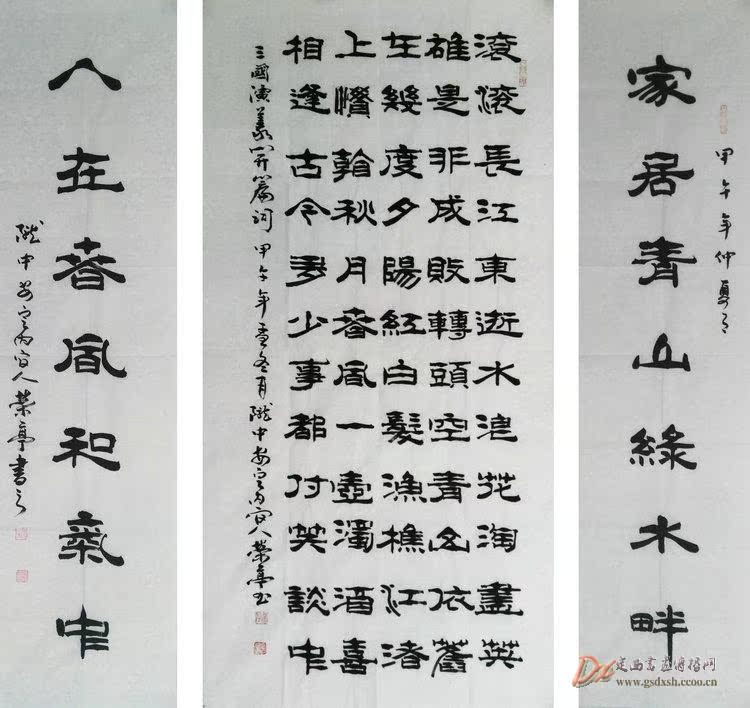 甲午年仲夏月
家居青山綠水畔
滾滾長江東逝水浪花淘盡英
雄是非成敗轉頭空青山依舊
在幾度夕陽紅白髮漁樵江渚
上慣看秋月春風一壺濁酒喜
相逢古今多少事都付笑談中
三國演義開篇詞 甲午年孟冬月隴中安定內官人榮亭書
人在春風和氣中
隴中安定內官人榮亭書之
定西書畫傳播网
www.gsdxsh.ccoo.cn